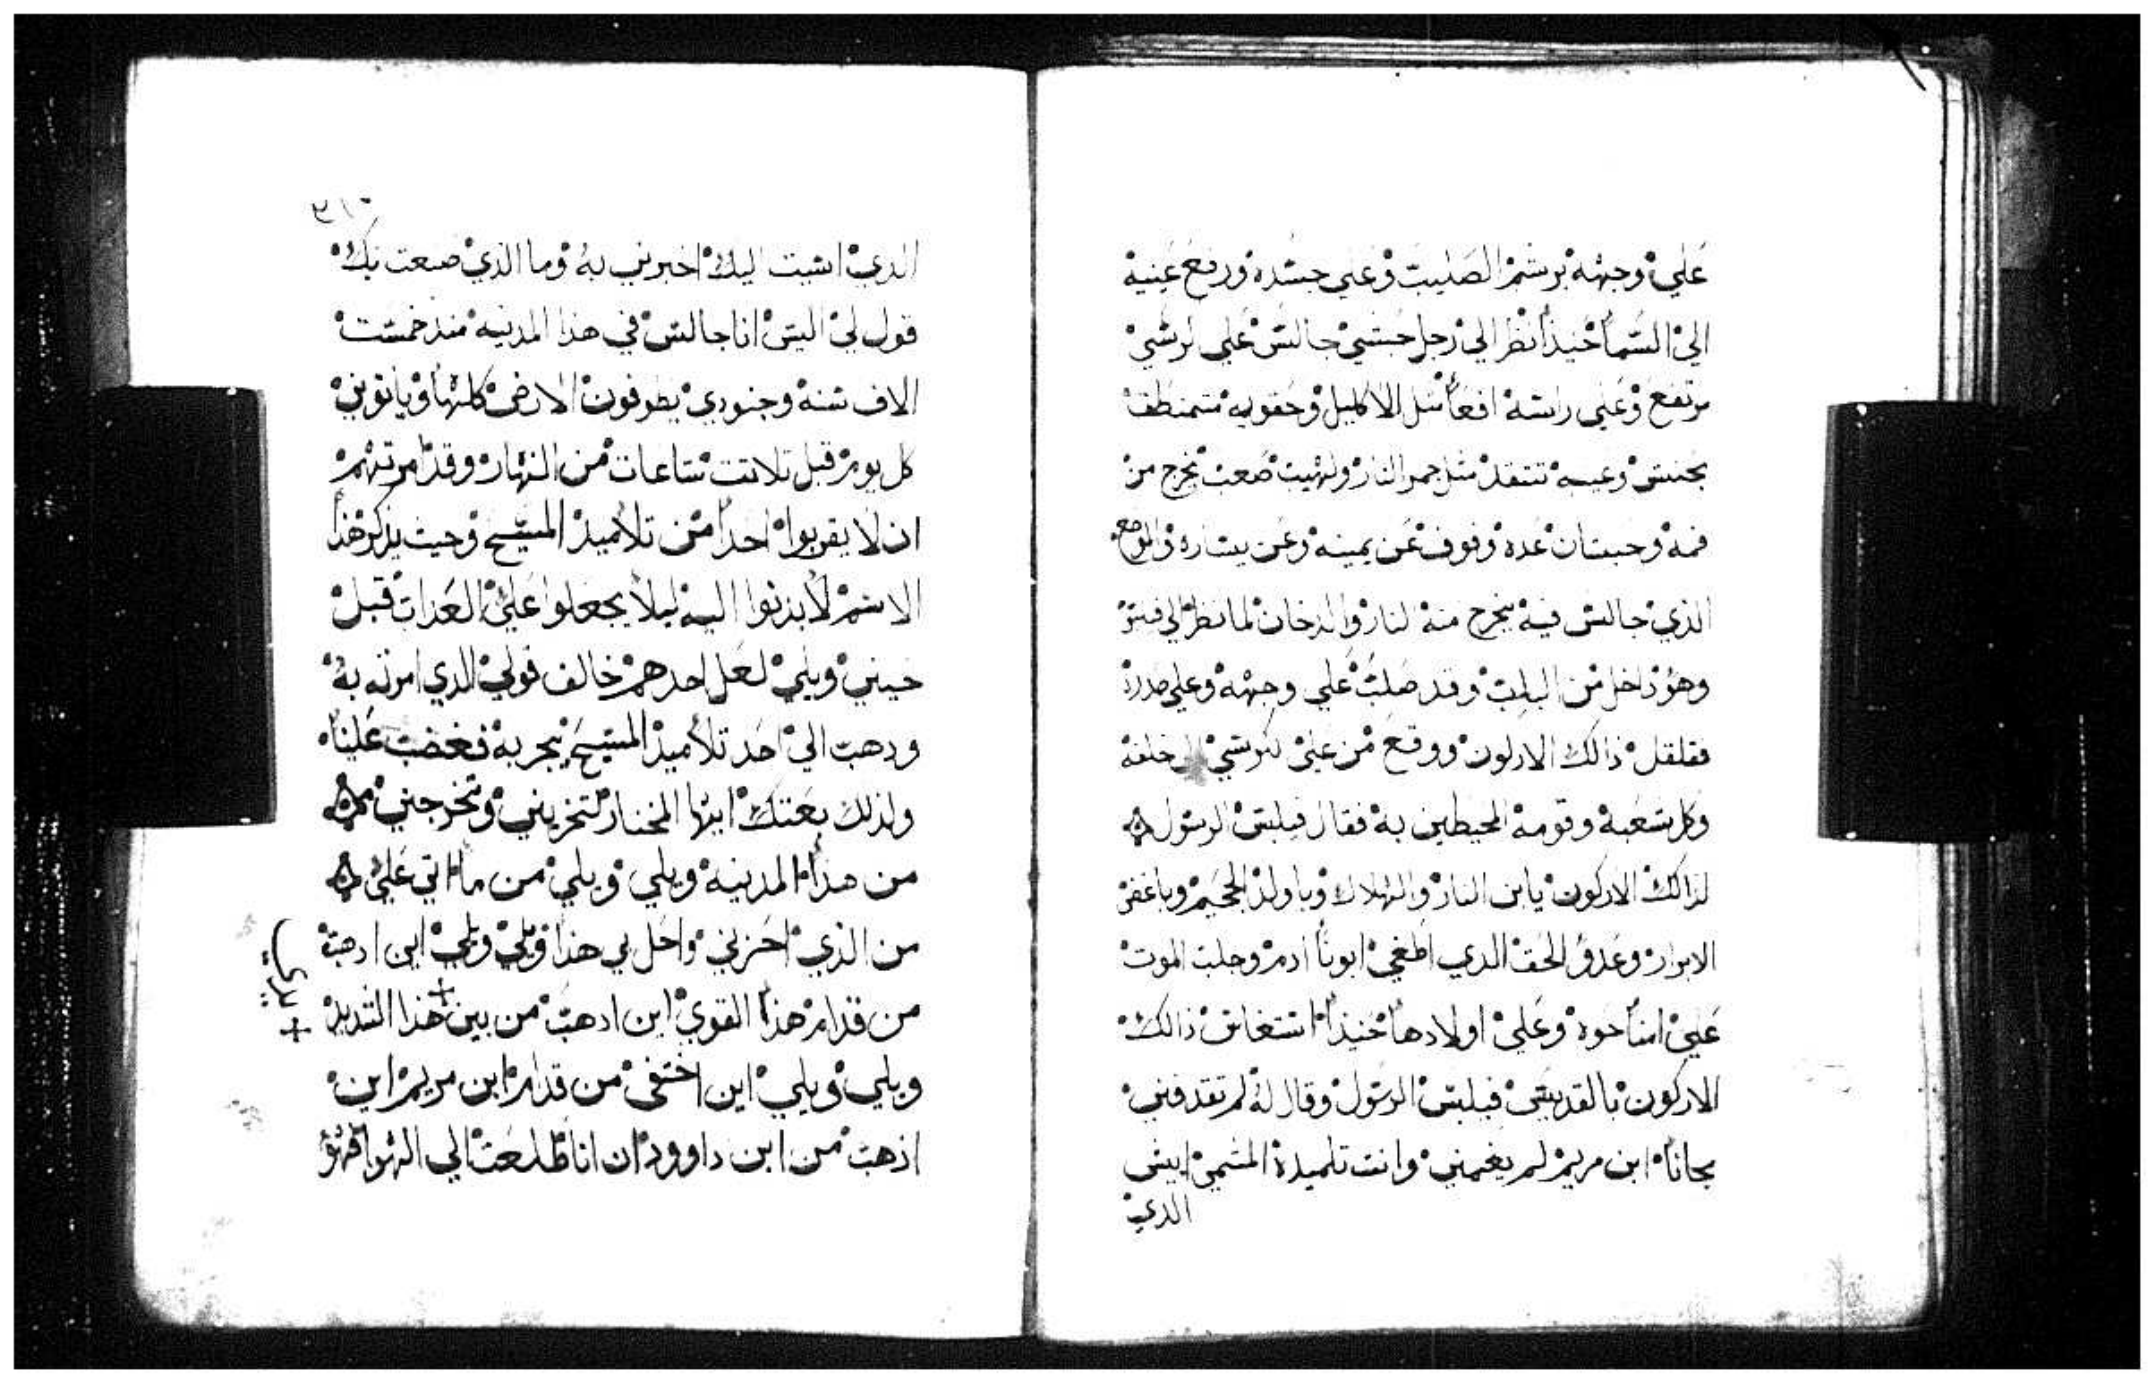 علي وجهه برشم الصليب وعلي جسده ورفع عنيه
الي السما حنيذا نظر الي رجل حبشي جالس علي كرسي
مرتفع وعلي راسه افعا مثل الاكليل وحقويه متمنطق
بحنش وعينيه تتقد مثل جمر النار ولهيب صعب يخرج من
فمه وحبشان عده وقوف عن يمينه وعن يساره والموضع
الذي جالس فيه يخرج منه النار والدخان لما نظر الي فيلبس
وهو داخل من الباب وقد صلب علي وجهه وعلي صدره
فقلقل ذالك الاركون ووقع من علي الكرسي الي خلفه
وكل شعبه وقومه المحيطين به فقال فيلبس الرسول
لذالك الاركون يابن النار والهلاك ويا ولد الجحيم ويا
الابرار وعدو الحق الدي اطغي ابونا ادم وجلب الموت
علي امنا حوه وعلي اولادها حنيذا استغاث ذالك
الاركون بالقديس فيلبس الرسول وقال له لم تقدفني
مجانا ابن مريم لم يغمني وانت تلميده المسمي ايش
الدي
٢١٠
الدي اسيت اليك اخبرني به وما الذي صنعت بك
قول لي اليس انا جالس في هذا المدينه مند خمست
الاف سنه وجنودي يطوفون الارض كلها وياتوني
كل يوم قبل تلاتت ساعات من النهار وقد امرتهم
ان لا يقربوا احدا من تلاميد المسيح وحيت يذكر هذا
الاسم لا يدنوا اليه ليلا يجعلوا علي العداب قبل
حيني ويلي لعل احدهم خالف قولي الدي امرته به
ودهب الي احد تلاميد المسيح يجربه فغضب علينا
ولذلك بعتك ايها المختار لتخزيني وتخرجني
من هدا المدينه ويلي ويلي من ما اتي علي
من الذي احزني واحل بي هذا ويلي ويلي اين ادهب
من قدام هذا القوي اين ادهب من بين + هذا الشديد
+ يدي
ويلي ويلي اين اختفي من قدام ابن مريم اين
اذهب من ابن داوود ان انا طلعت الي الهوا فهو